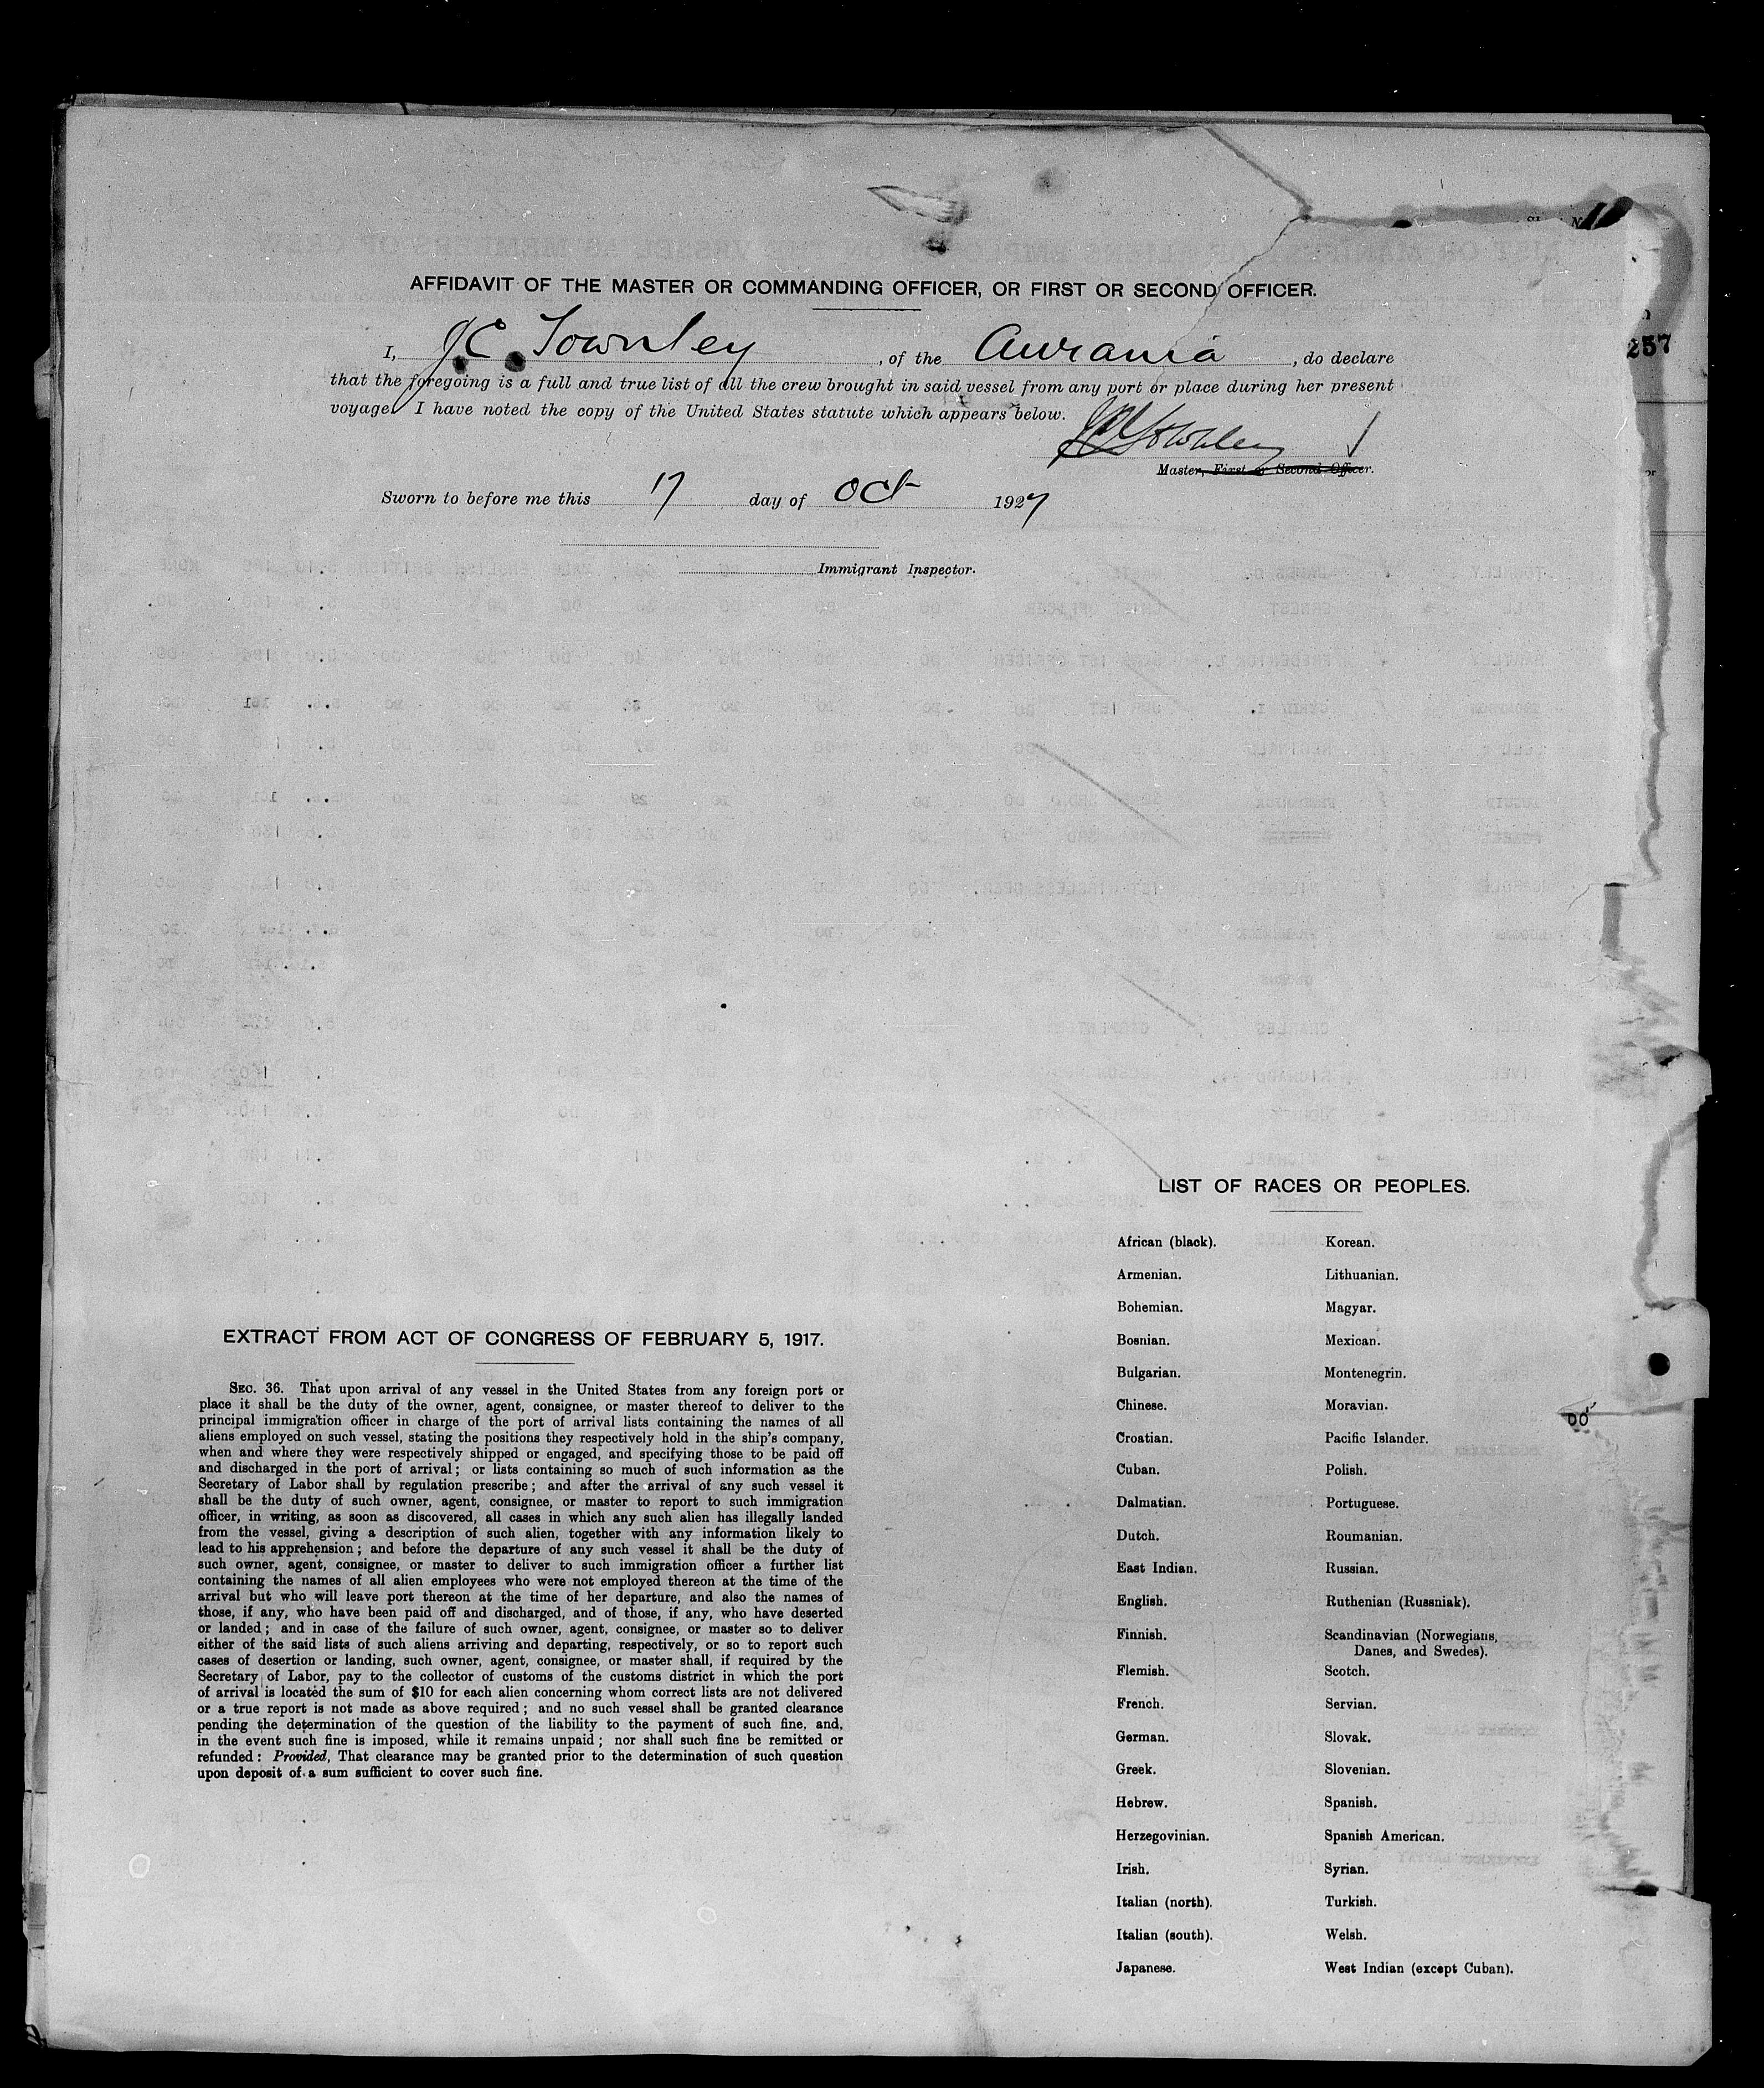 11
257
AFFIDAVIT OF THE MASTER OR COMMANDING OFFICER, OR FIRST OR SECOND OFFICER.
I, J.C. Townley, of the Aurania, do declare
that the foregoing is a full and true list of all the crew brought in said vessel from any port or place during her present
voyage. I have noted the copy of the United States statute which appears below.
Townley
Master, First or Second Officer.
Sworn to before me this 17 day of Oct 1927
Immigrant Inspector.
LIST OF RACES OR PEOPLES.
African (black). Korean.
Armenian. Lithuanian.
Bohemian. Magyar.
Bosnian. Mexican.
Bulgarian. Montenegrin.
Chinese. Moravian.
Croatian. Pacific Islander.
Cuban. Polish.
Dalmatian. Portuguese.
Dutch. Roumanian.
East Indian. Russian.
English. Ruthenian (Russniak).
Finnish. Scandinavian (Norwegians,
Danes, and Swedes).
Flemish. Scotch.
French. Servian.
German. Slovak.
Greek. Slovenian.
Hebrew. Spanish.
Herzegovinian. Spanish American.
Irish. Syrian.
Italian (north). Turkish.
Italian (south). Welsh.
Japanese. West Indian (except Cuban).
EXTRACT FROM ACT OF CONGRESS OF FEBRUARY 5, 1917.
SEC. 36. That upon arrival of any vessel in the United States from any foreign port or
place it shall be the duty of the owner, agent, consignee, or master thereof to deliver to the
principal immigration officer in charge of the port of arrival lists containing the names of all
aliens employed on such vessel, stating the positions they respectively hold in the ship's company,
when and where they were respectively shipped or engaged, and specifying those to be paid off
and discharged in the port of arrival; or lists containing so much of such information as the
Secretary of Labor shall by regulation prescribe; and after the arrival of any such vessel it
shall be the duty of such owner, agent, consignee, or master to report to such immigration
officer, in writing, as soon as discovered, all cases in which any such alien has illegally landed
from the vessel, giving a description of such alien, together with any information likely to
lead to his apprehension; and before the departure of any such vessel it shall be the duty of
such owner, agent, consignee, or master to deliver to such immigration officer a further list
containing the names of all alien employees who were not employed thereon at the time of the
arrival but who will leave port thereon at the time of her departure, and also the names of
those, if any, who have been paid off and discharged, and of those, if any, who have deserted
or landed; and in case of the failure of such owner, agent, consignee, or master so to deliver
either of the said lists of such aliens arriving and departing, respectively, or so to report such
cases of desertion or landing, such owner, agent, consignee, or master shall, if required by the
Secretary of Labor, pay to the collector of customs of the customs district in which the port
of arrival is located the sum of $10 for each alien concerning whom correct lists are not delivered
or a true report is not made as above required; and no such vessel shall be granted clearance
pending the determination of the question of the liability to the payment of such fine, and,
in the event such fine is imposed, while it remains unpaid; nor shall such fine be remitted or
refunded: Provided, That clearance may be granted prior to the determination of such question
upon deposit of a sum sufficient to cover such fine.